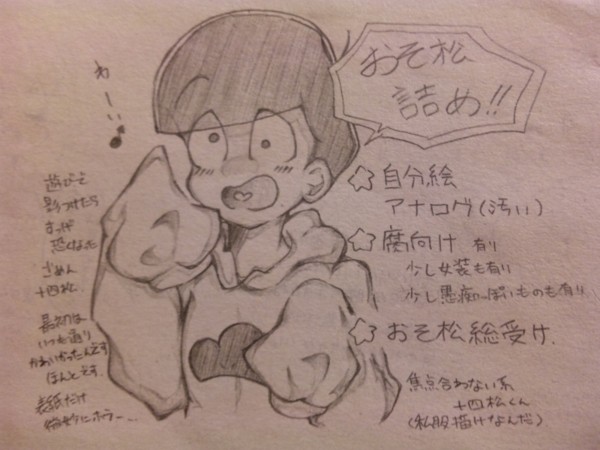 わーい♪
おそ松
詰め!!
☆自分絵
アナログ(汚い)
☆腐向け 有り
少し女装も有り
少し愚痴っぽいものも有り
☆おそ松総受け.
焦点合わない系
十四松くん
(私服描けなんだ)
遊びで
影つけたら
恐くなった
ごめん
十四松.
最初は
いつも通り
かわいかったんです
ほんとです.
表紙だけ
ホラー...